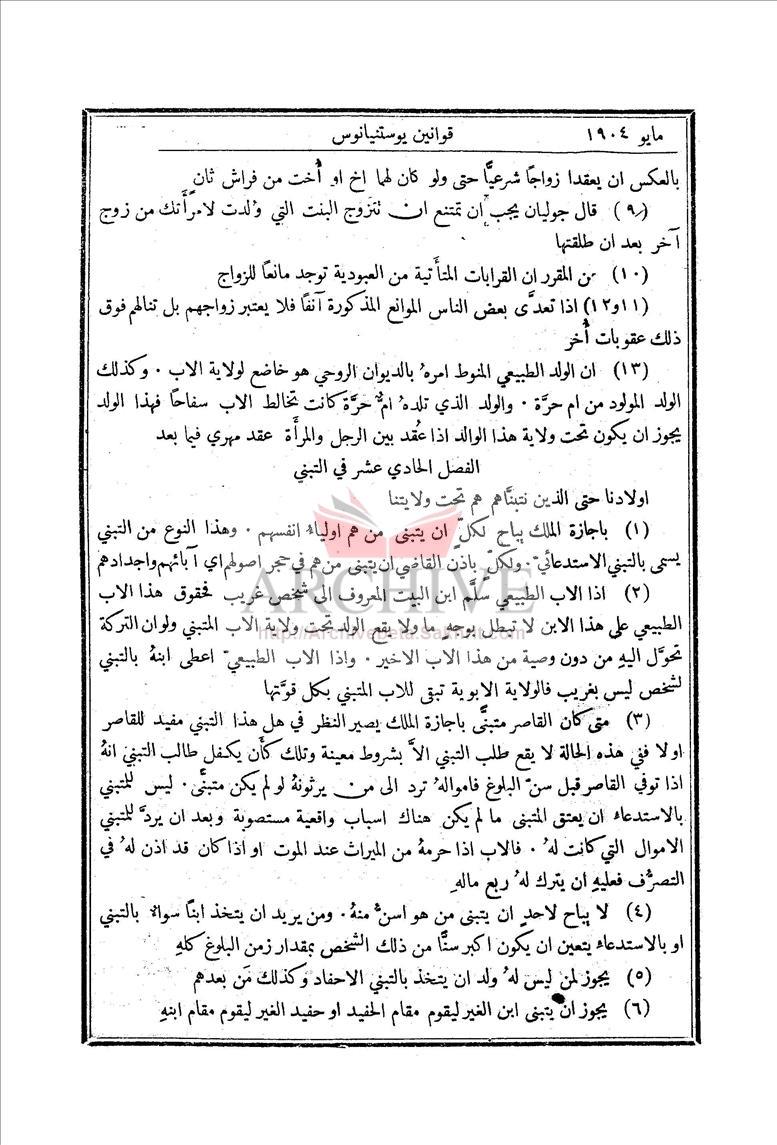 مايو ١٩٠٤
قوانين يوستنيانوس
بالعكس ان يعقدا زواجًا شرعيًّا حتى ولو كان لهما اخ او أُخت من فراش ثان
(٩) قال جوليان يجب ان تمتنع ان تتزوج البنت التي وُلدت لامرأتك من زوج
آخر بعد ان طلقتها
(١٠) من المقرر ان القرابات المتأَتية من العبودية توجد مانعًا للزواج
(١١و١٢) اذا تعدَّى بعض الناس الموانع المذكورة آنفًا فلا يعتبر زواجهم بل تنالهم فوق
ذلك عقوبات أُخر
(١٣) ان الولد الطبيعي المنوط امرهُ بالديوان الروحي هو خاضع لولاية الاب . وكذلك
الولد المولود من ام حرَّة . والولد الذي تلدهُ امٌّ حرَّة كانت تخالط الاب سفاحًا فهذا الولد
يجوز ان يكون تحت ولاية هذا الوالد اذا عُقد بين الرجل والمرأَة عقد مهري فيما بعد
الفصل الحادي عشر في التبني
اولادنا حتى الذين نتبنَّاهم هم تحت ولايتنا
(١) باجازة الملك يباح لكلّ ان يتبنى من هم اولياء انفسهم . وهذا النوع من التبني
يسمى بالتبني الاستدعائيّ . ولكلّ باذن القاضي ان يتبنى من هم في حجر اصولهم اي آبائهم واجدادهم
(٢) اذا الاب الطبيعي سلَّم ابن البيت المعروف الى شخص غريب فحقوق هذا الاب
الطبيعي على هذا الابن لا تبطل بوجه ما ولا يقع الولد تحت ولاية الاب المتبني ولو ان التركة
تحوَّل اليهِ من دون وصية من هذا الاب الاخير . واذا الاب الطبيعيّ اعطى ابنهُ بالتبني
لشخص ليس بغريب فالولاية الابوية تبقى للاب المتبني بكل قوَّتها
(٣) متى كان القاصر متبنًّى باجازة الملك يصير النظر في هل هذا التبني مفيد للقاصر
او لا ففي هذه الحالة لا يقع طلب التبني الاَّ بشروط معينة وتلك كأَن يكفل طالب التبني انهُ
اذا توفي القاصر قبل سنّ البلوغ فاموالهُ ترد الى من يرثونهُ لو لم يكن متبنًّى . ليس للمتبني
بالاستدعاء ان يعتق المتبنى ما لم يكن هناك اسباب واقعية مستصوبة وبعد ان يردَّ للمتبنى
الاموال التي كانت لهُ . فالاب اذا حرمهُ من الميراث عند الموت او اذا كان قد اذن لهُ في
التصرُّف فعليهِ ان يترك لهُ ربع مالهِ
(٤) لا يباح لاحدٍ ان يتبنى من هو اسنُّ منهُ . ومن يريد ان يتخذ ابنًا سواءً بالتبني
او بالاستدعاء يتعين ان يكون اكبر سنًّا من ذلك الشخص بمقدار زمن البلوغ كلهِ
(٥) يجوز لمن ليس لهُ ولد ان يتخذ بالتبني الاحفاد وكذلك مَن بعدهم
(٦) يجوز ان يتبنى ابن الغير ليقوم مقام الحفيد او حفيد الغير ليقوم مقام ابنهِ
ARCHIVE
http://Archivebeta.Sakhrit.com